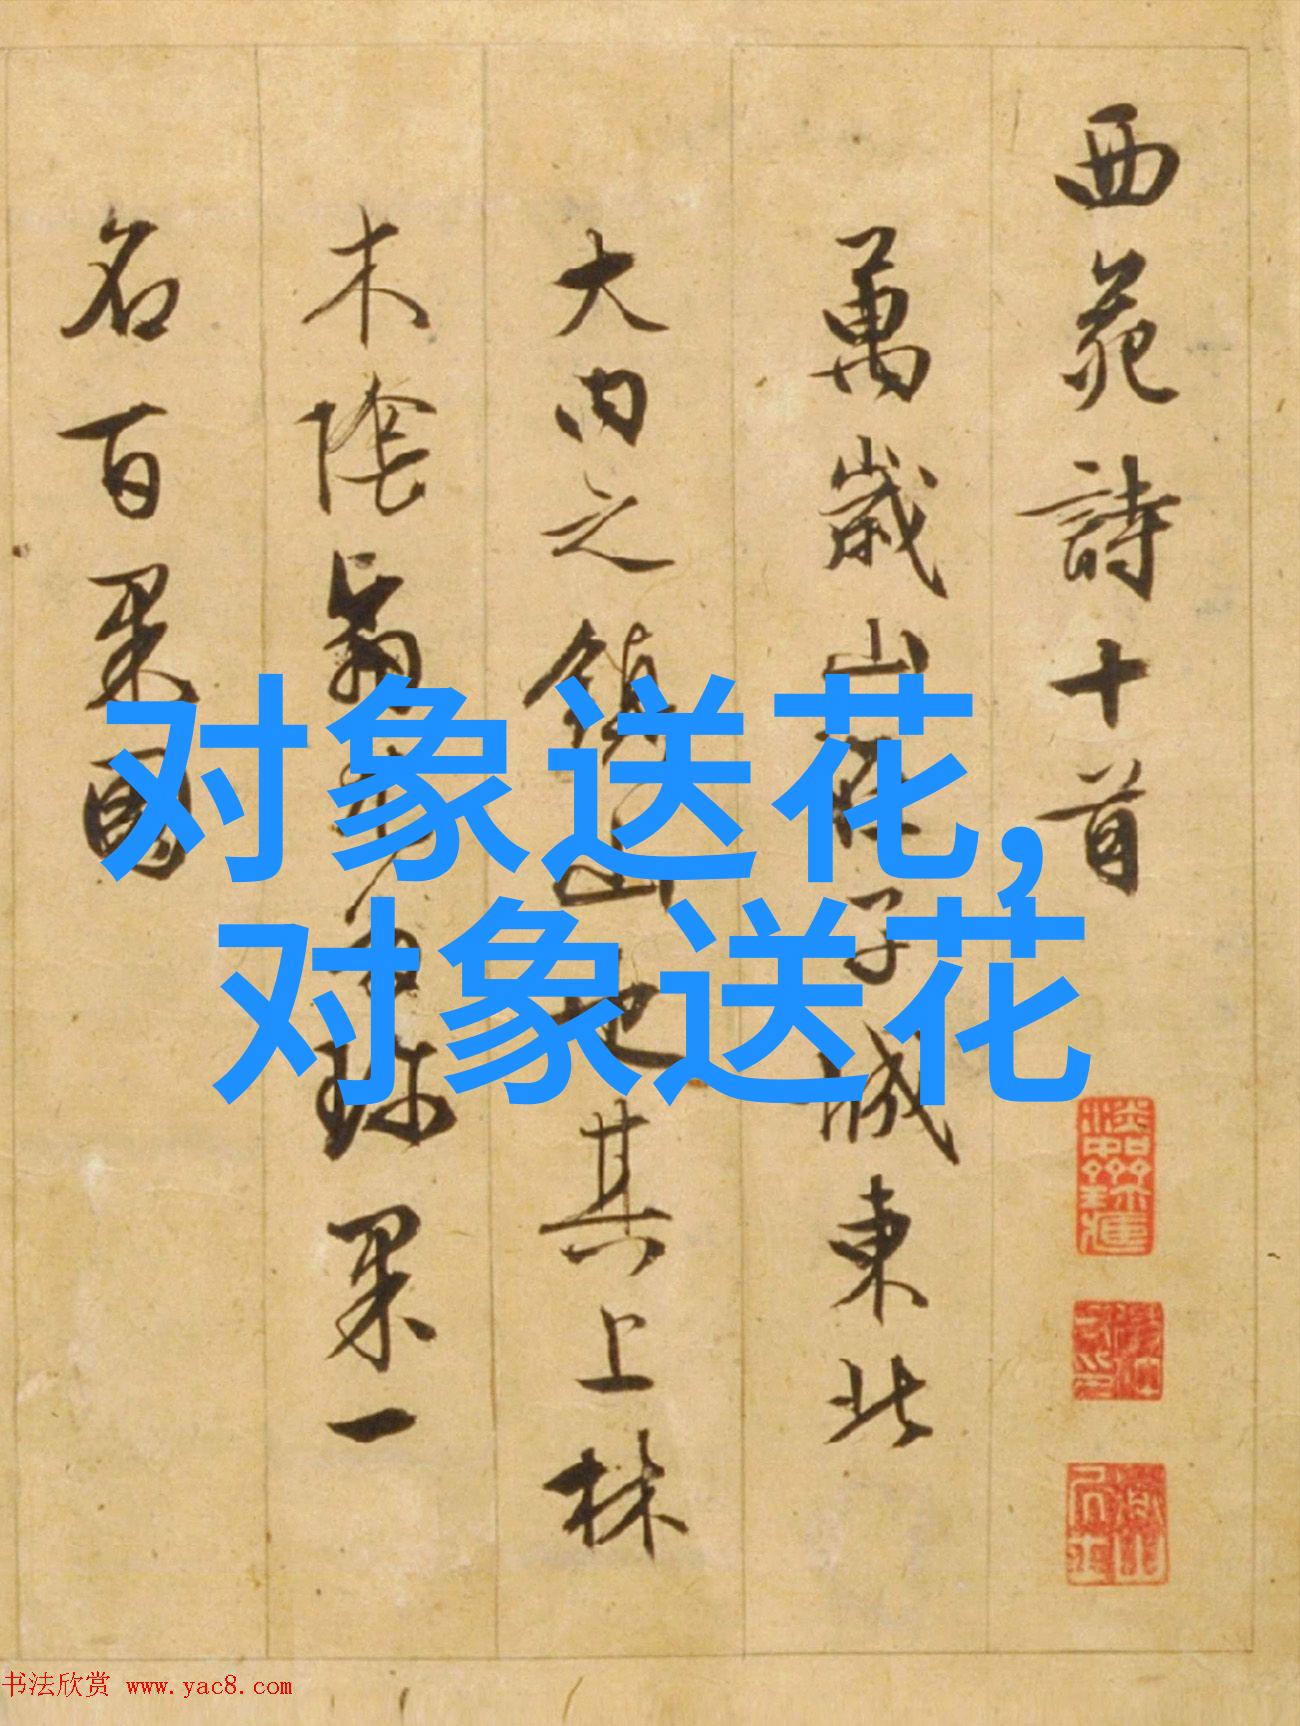 西苑詩十首
萬歲山在子城東北
大内之鎮山也其上林
木陰翳尤多珍果一
名百果園
对象送花,
对象送花
书法欣赏 www.yac8.com